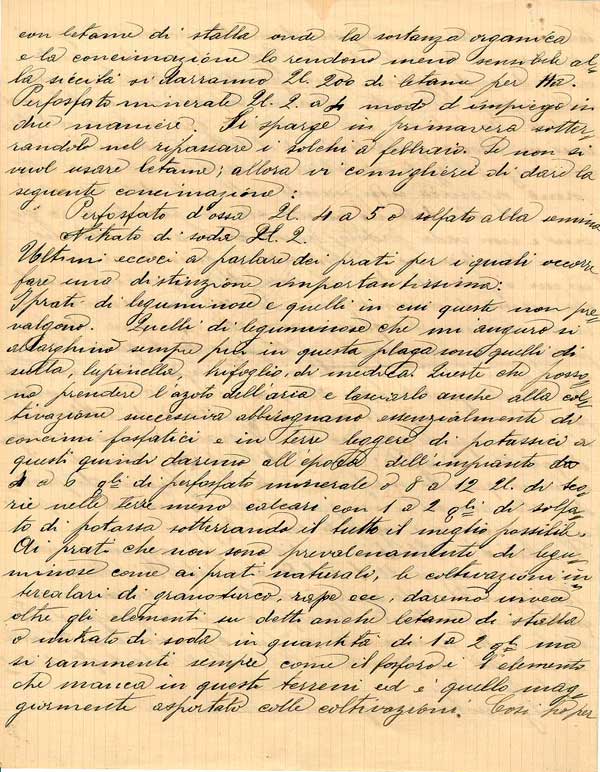 con letame di stalla onde la sostanza organica
e la concimazione lo rendono meno sensibile al-
la siccità si daranno Ql. 200 di letame per Ha.
Perfosfato minerale Ql. 2. a 4 modo d'impiego in
due maniere. Si sparge in primavera sotter-
randolo nel ripassare i solchi a febbraio. Se non si
vuol usare letame; allora vi consiglierei di dare la
seguente concimazione:
Perfosfato d'ossa Ql. 4 a 5 o solfato alla semina
Nitrato di soda Ql. 2.
Ultimi eccoci a parlare dei prati per i quali occorre
fare una distinzione importantissima:
I prati di leguminose e quelli in cui queste non pre-
valgono. Quelli di leguminose che mi auguro si
allarghino sempre più in questa plaga sono quelli di
sulla, lupinella, trifoglio, di medica. Queste che posso-
no prendere l'azoto dell'aria e lasciarlo anche alla col-
tivazione successiva abbisognano essenzialmente di
concimi fosfatici e in terre leggere di potassici a
questi quindi daremo all'epoca dell'impianto da
4 a 6 qli di perfosfato minerale o 8 a 12 Ql. di sco-
rie nelle terre meno calcari con 1 a 2 qli di solfa-
to di potassa sotterrando il tutto il meglio possibile.
Ai prati che non sono prevalenamente di legu-
minose come ai prati naturali, le coltivazioni in-
tercalari di granoturco, rape ecc, daremo invece
oltre gli elementi su detti anche letame di stalla
o nitrato di soda in quantità di 1 a 2 qli ma
si rammenti sempre come il fosforo è l'elemento
che manca in questi terreni ed è quello mag-
giormente asportato colle coltivazioni. Così ho per